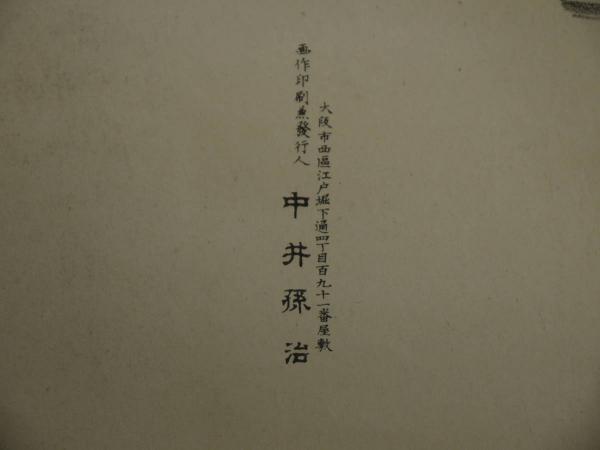 大阪市西區江戸堀下通四丁目百九十一番屋敷
画作印刷兼發行人
中井孫治